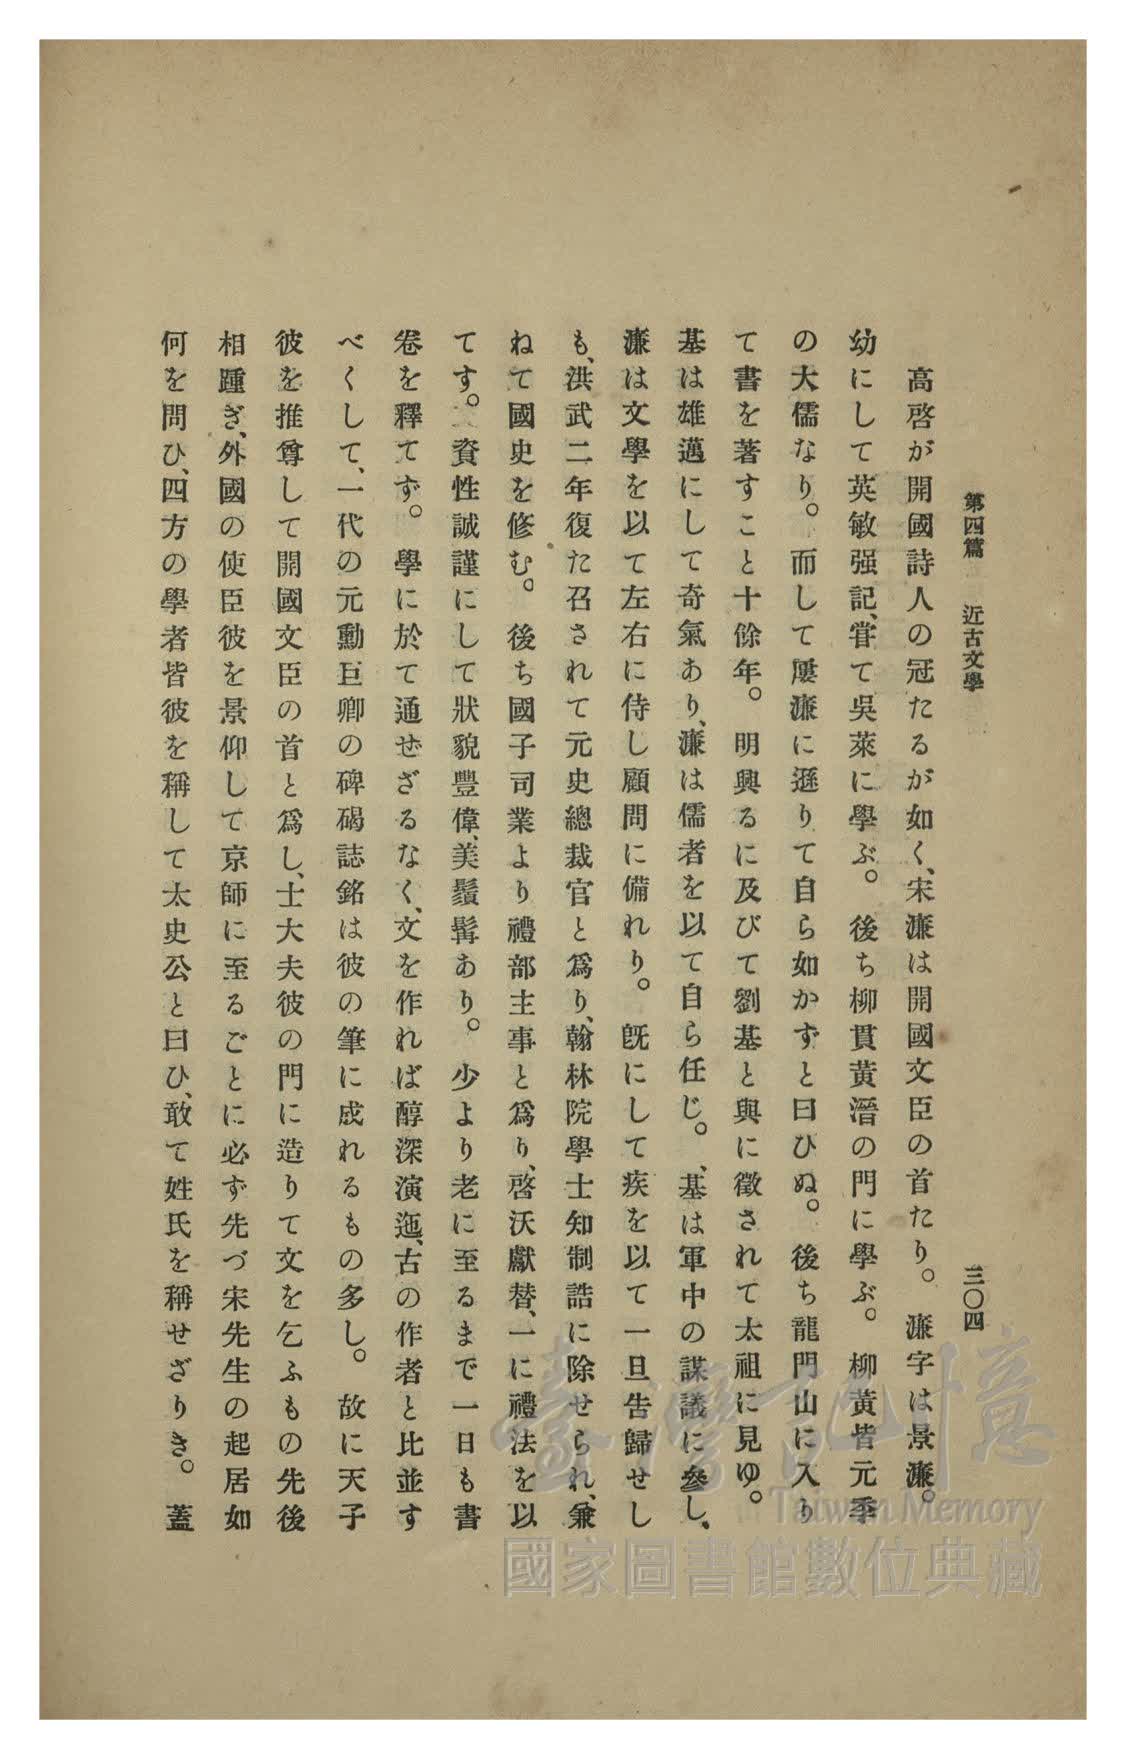 第四篇　近古文學　三〇四
高啓が開國詩人の冠たるが如く、宋濂は開國文臣の首たり。濂字は景濂。
幼にして英敏强記、嘗て吳萊に學ぶ。後ち柳貫黃溍の門に學ぶ。柳黃皆元季
の大儒なり。而して屢濂に遜りて自ら如かずと曰ひぬ。後ち龍門山に入り
て書を著すこと十餘年。明興るに及びて劉基と與に徵されて太祖に見ゆ。
基は雄邁にして奇氣あり、濂は儒者を以て自ら任じ。、基は軍中の謀議に參し、
濂は文學を以て左右に侍し顧問に備れり。旣にして疾を以て一旦告歸せし
も、洪武二年復た召されて元史總裁官と爲り、翰林院學士知制誥に除せられ、兼
ねて國史を修む。後ち國子司業より禮部主事と爲り、啓沃獻替、一に禮法を以
てす。資性誠謹にして狀貌豐偉、美鬚髯あり。少より老に至るまで一日も書
卷を釋てず。學に於て通ぜざるなく、文を作れば醇深演迤、古の作者と比並す
べくして、一代の元勳巨卿の碑碣誌銘は彼の筆に成れるもの多し。故に天子
彼を推尊して開國文臣の首と爲し、士大夫彼の門に造りて文を乞ふもの先後
相踵ぎ、外國の使臣彼を景仰して京師に至るごとに必ず先づ宋先生の起居如
何を問ひ、四方の學者皆彼を稱して太史公と曰ひ、敢て姓氏を稱せざりき。蓋
臺灣記憶
Taiwan Memory
國家圖書館數位典藏